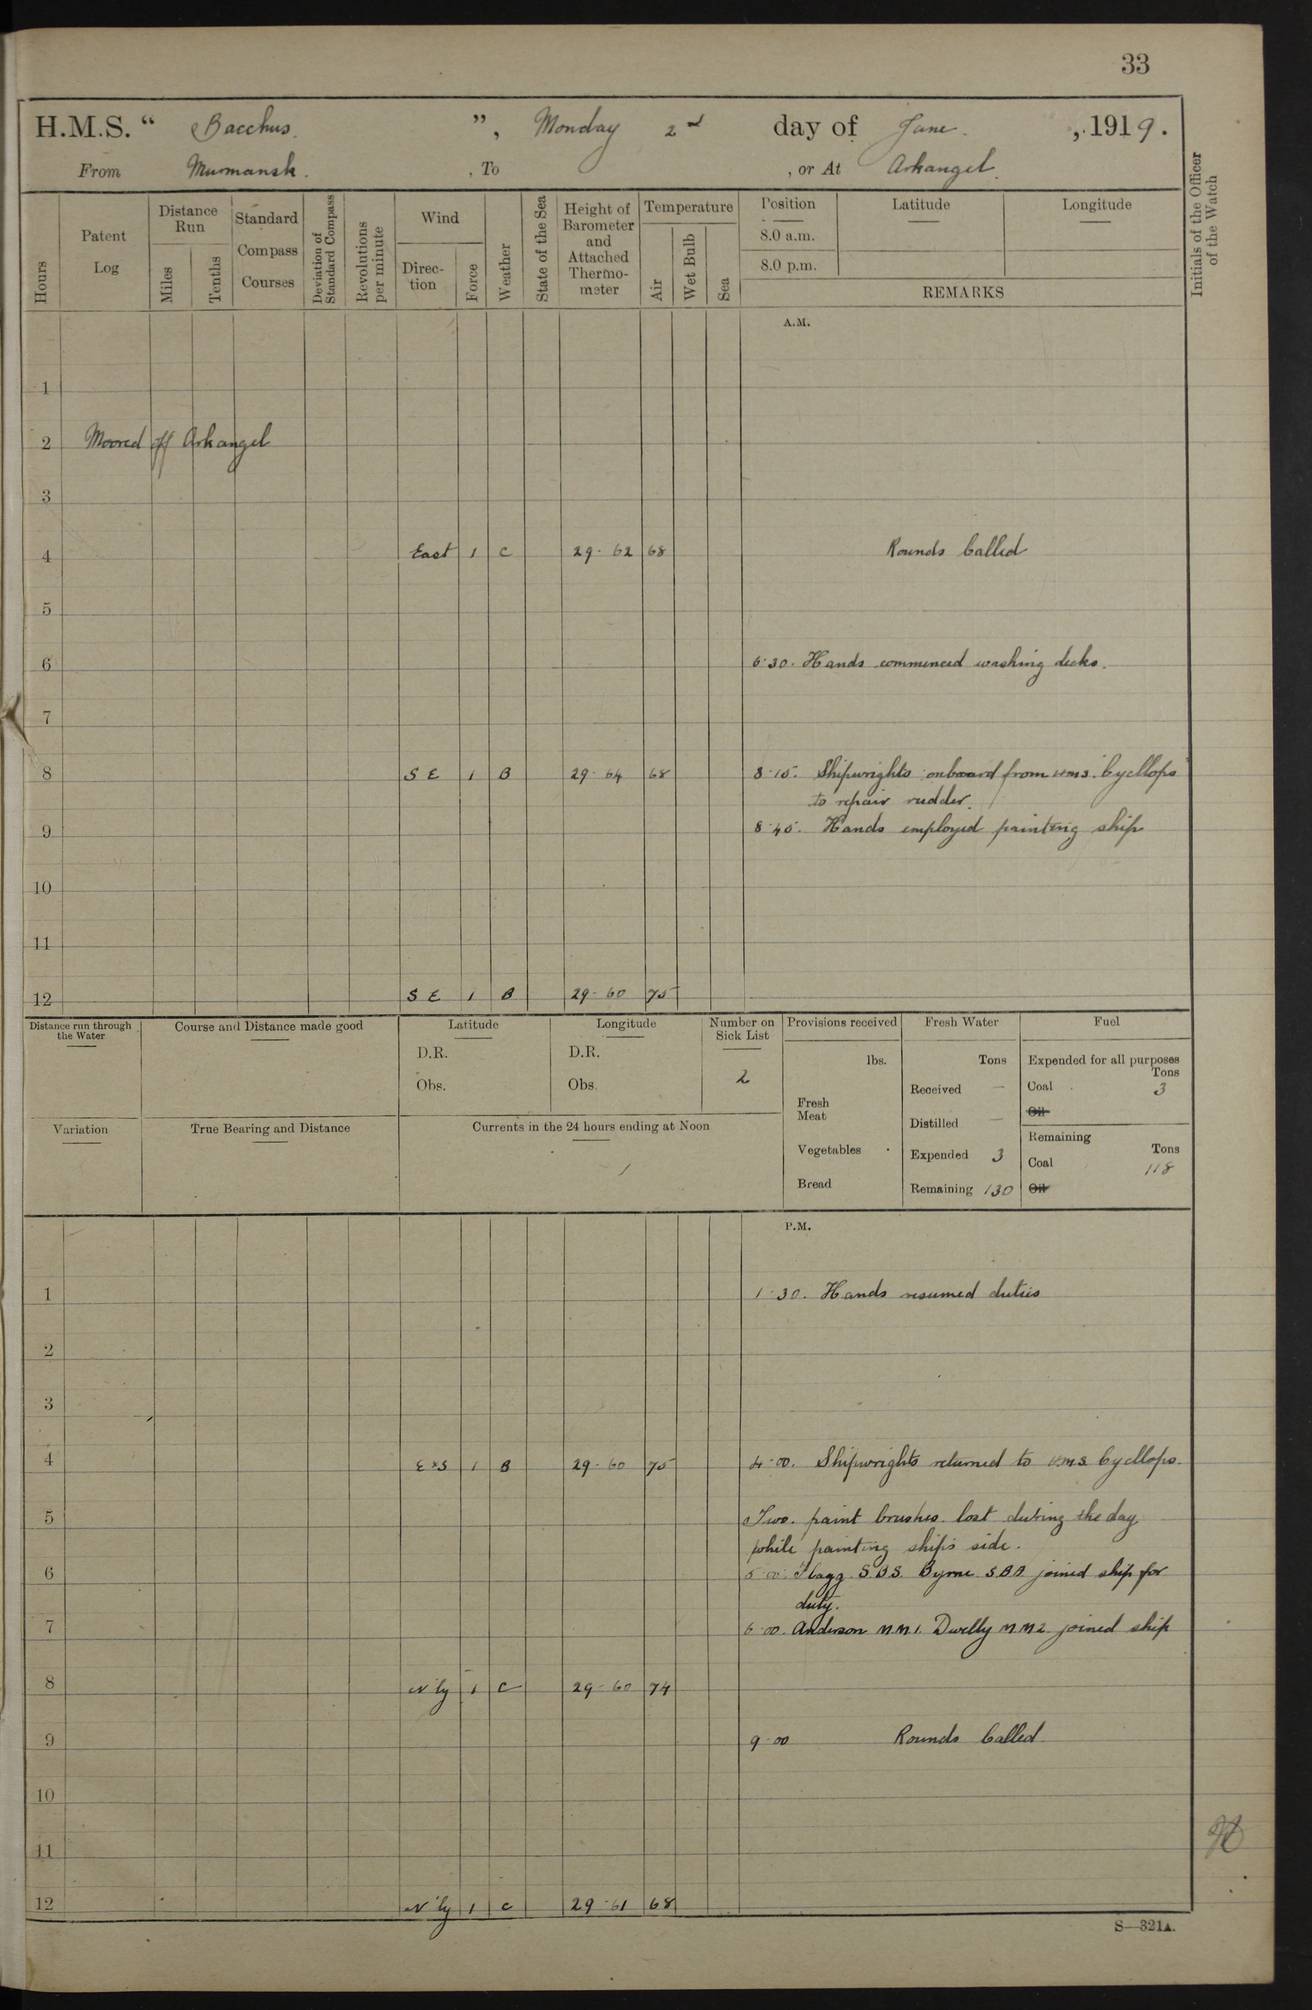 33
H.M.S. “ Bacchus. ”, Monday 2nd day of June. , 1919.
From Murmansk. , To , or At Arkangel.
Initials of the Officer of the Watch
Hours
Patent Log
Distance Run
Miles
Tenths
Standard Compass Courses
Deviation of Standard Compass
Revolutions per minute
Wind
Direc-tion
Force
Weather
State of the Sea
Height of Barometer and Attached Thermo-meter
Temperature
Air
Wet Bulb
Sea
Position
8.0 a.m.
8.0 p.m.
Latitude
Longitude
REMARKS
A.M.
1
2 Moored off Arkangel
3
4 East 1 C 29·62 68 Rounds Called
5
6 6·30. Hands commenced washing decks.
7
8 S E 1 B 29·64 68 8·15. Shipwrights onboard from H.M.S. Cycllops
to repair rudder.
9 8·45. Hands employed painting ship
10
11
12 S E 1 B 29·60 75
Distance run through the Water
Course and Distance made good
Latitude
D.R.
Obs.
Longitude
D.R.
Obs.
Number on Sick List
2
Provisions received
lbs.
Fresh Meat
Vegetables
Bread
Fresh Water
Tons
Received —
Distilled —
Expended 3
Remaining 130
Fuel
Expended for all purposes
Tons
Coal 3
Oil
Remaining
Tons
Coal 118
Oil
Variation
True Bearing and Distance
Currents in the 24 hours ending at Noon
P.M.
1 1·30. Hands resumed duties
2
3
4 E x S 1 B 29·60 75 4·00. Shipwrights returned to H.M.S. Cycllops.
5 Two paint brushes lost during the day
while painting ships side.
6 5·00. Flagg S.B.S. Byrne S.B.A joined ship for
duty.
7 6·00. Anderson MM1. Dwelly MM2 joined ship
8 N'ly 1 C 29·60 74
9 9·00 Rounds Called
10
11
12 N'ly 1 C 29·61 68
S—321A.